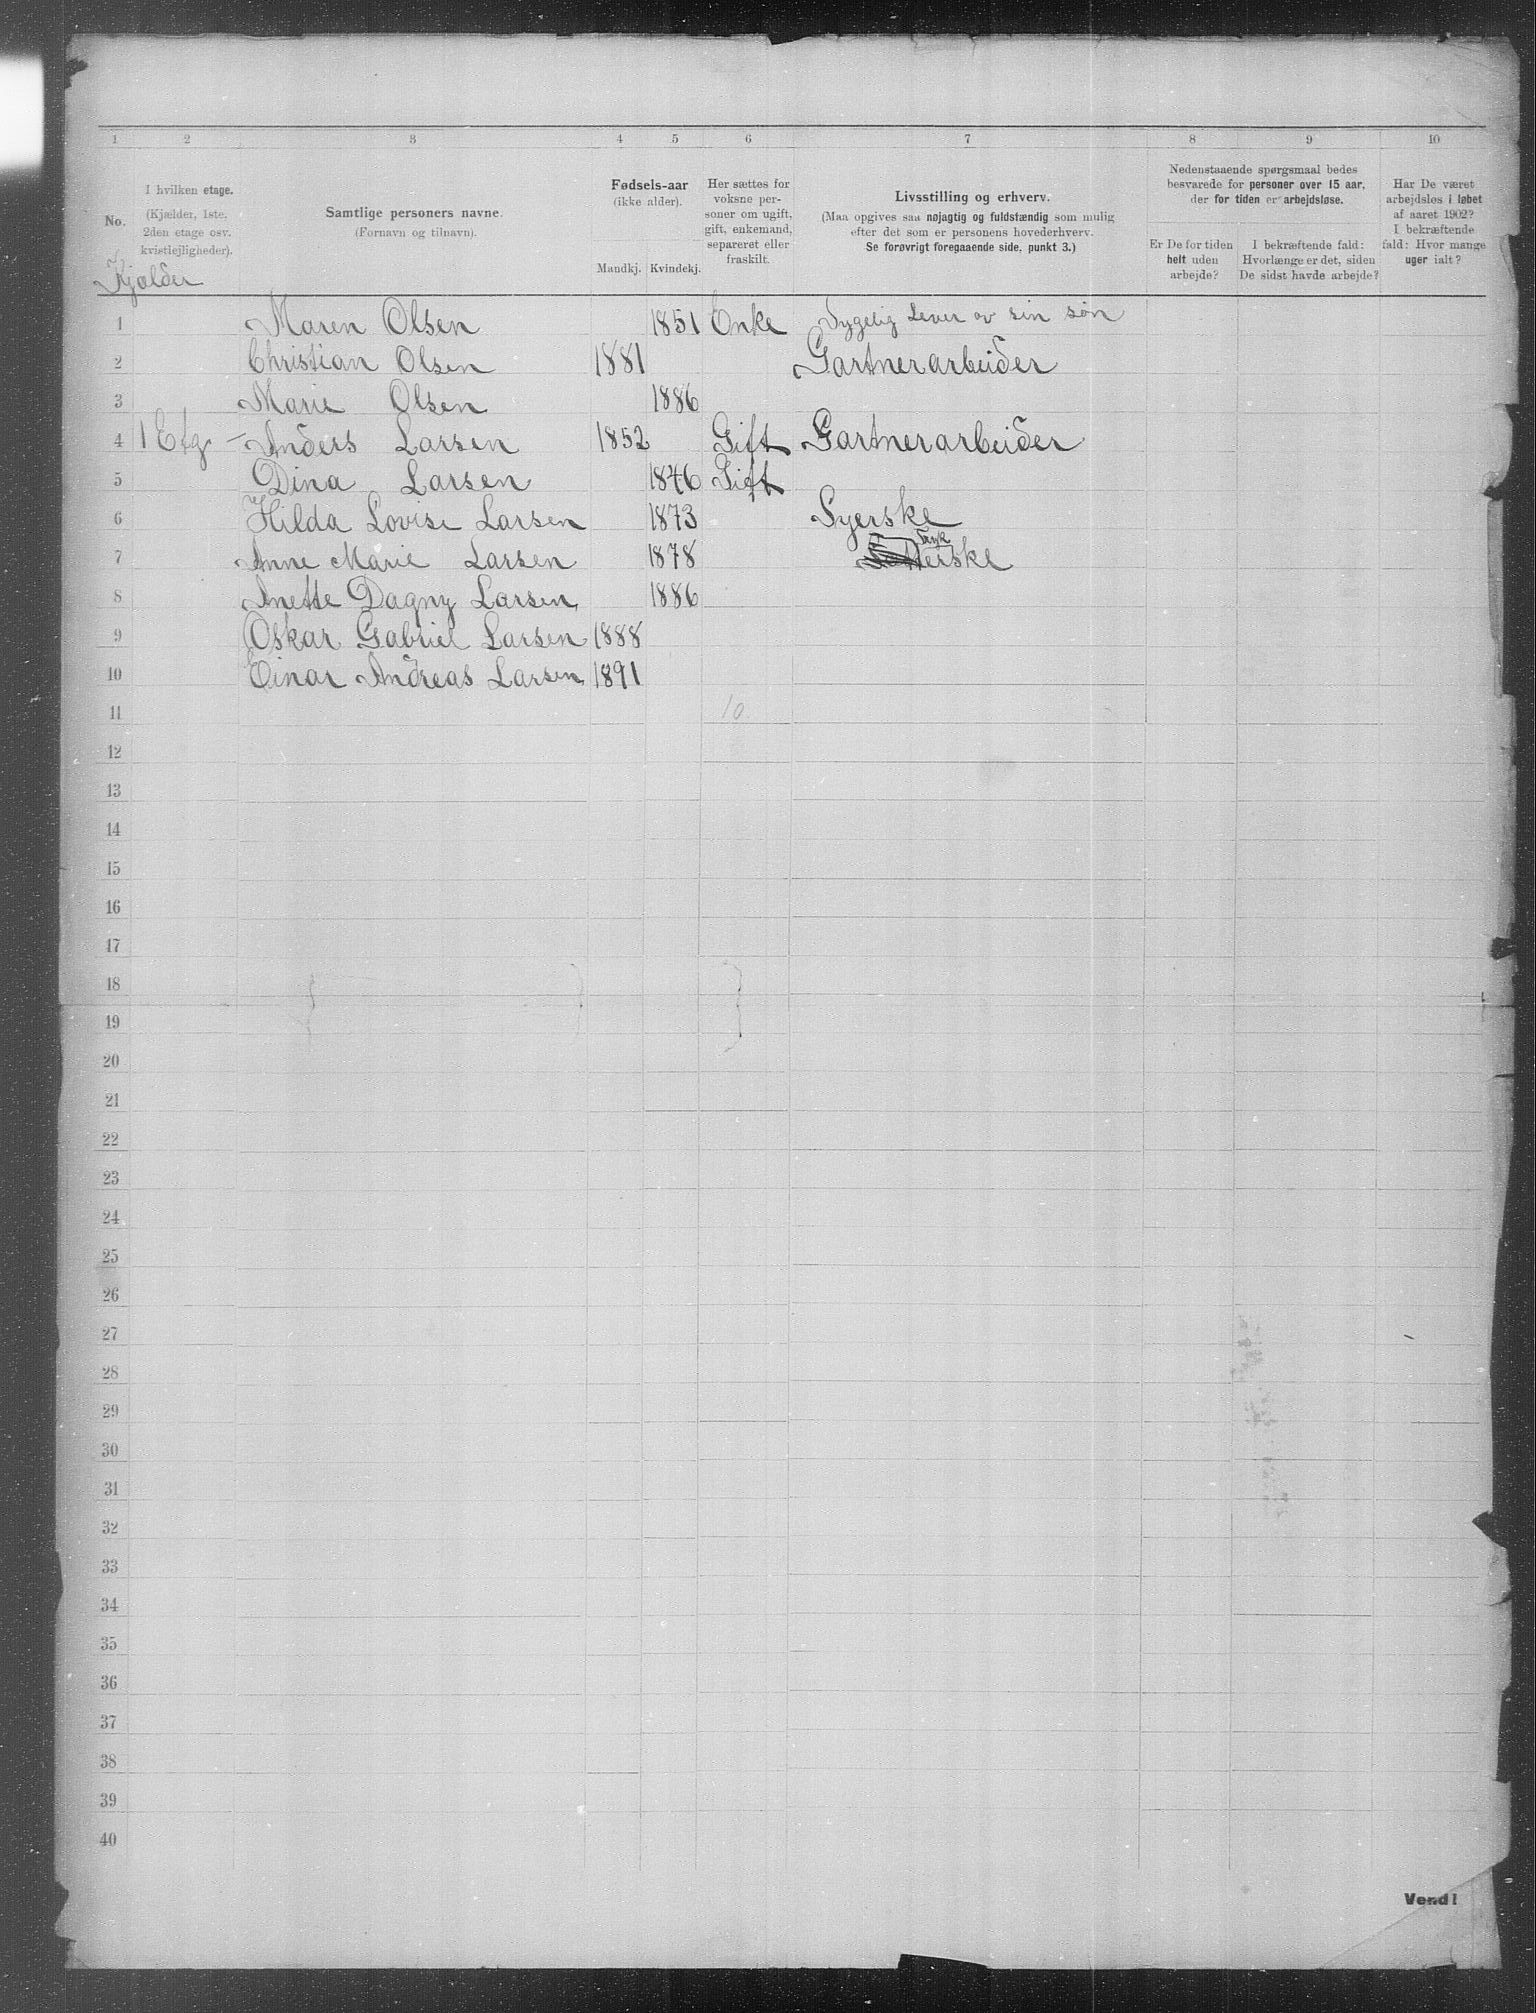 1 2 3 4 5 6 7 8 9 10
No.
I hvilken etage.
(Kjælder, 1ste.
2den etage osv.
kvistlejligheder).
Samtlige personers navne.
(Fornavn og tilnavn).
Fødsels-aar
(ikke alder).
Mandkj. Kvindekj.
Her sættes for
voksne per-
soner om ugift,
gift, enkemand,
separeret eller
fraskilt.
Livsstilling og erhverv.
(Maa opgives saa nøjagtig og fuldstændig som mulig
efter det som er personens hovederhverv.
Se forøvrigt foregaaende side, punkt 3.)
Nedenstaaende spørgsmaal bedes
besvarede for personer over 15 aar,
der for tiden er arbejdsløse.
Er De for tiden
helt uden
arbejde?
I bekræftende fald:
Hvorlænge er det, siden
De sidst havde arbejde?
Har De været
arbejdsløs i løbet
af aaret 1902?
I bekræftende
fald: Hvor mange
uger ialt?
Kjælder
1 Maren Olsen 1851 Enke Sygelig Lever av sin søn
2 Christian Olsen 1881 Gartnerarbeider
3 Marie Olsen 1886
4 1 Etg Anders Larsen 1852 Gift Gartnerarbeider
5 Dina Larsen 1846 Gift
6 Hilda Lovise Larsen 1873 Syerske
7 Anne Marie Larsen 1878 erske
8 Anette Dagny Larsen 1886
9 Oskar Gabriel Larsen 1888
10 Einar Andreas Larsen 1891
11 10
12
13
14
15
16
17
18
19
20
21
22
23
24
25
26
27
28
29
30
31
32
33
34
35
36
37
38
39
40
Vend!